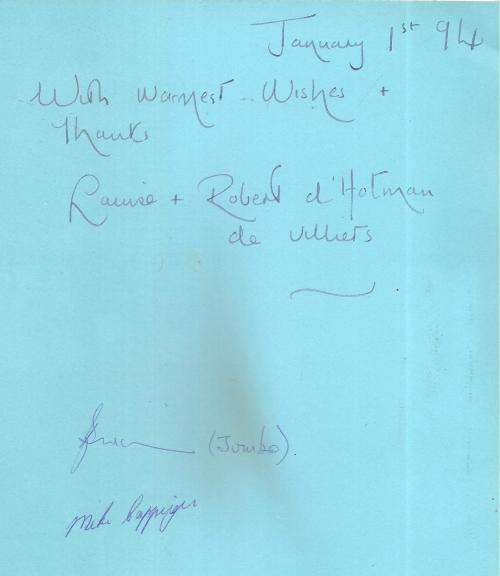 January 1st 94
With warmest Wishes +
Thanks
Louise + Robert d'Hotman
de Villiers
(Jumbo)
Mike